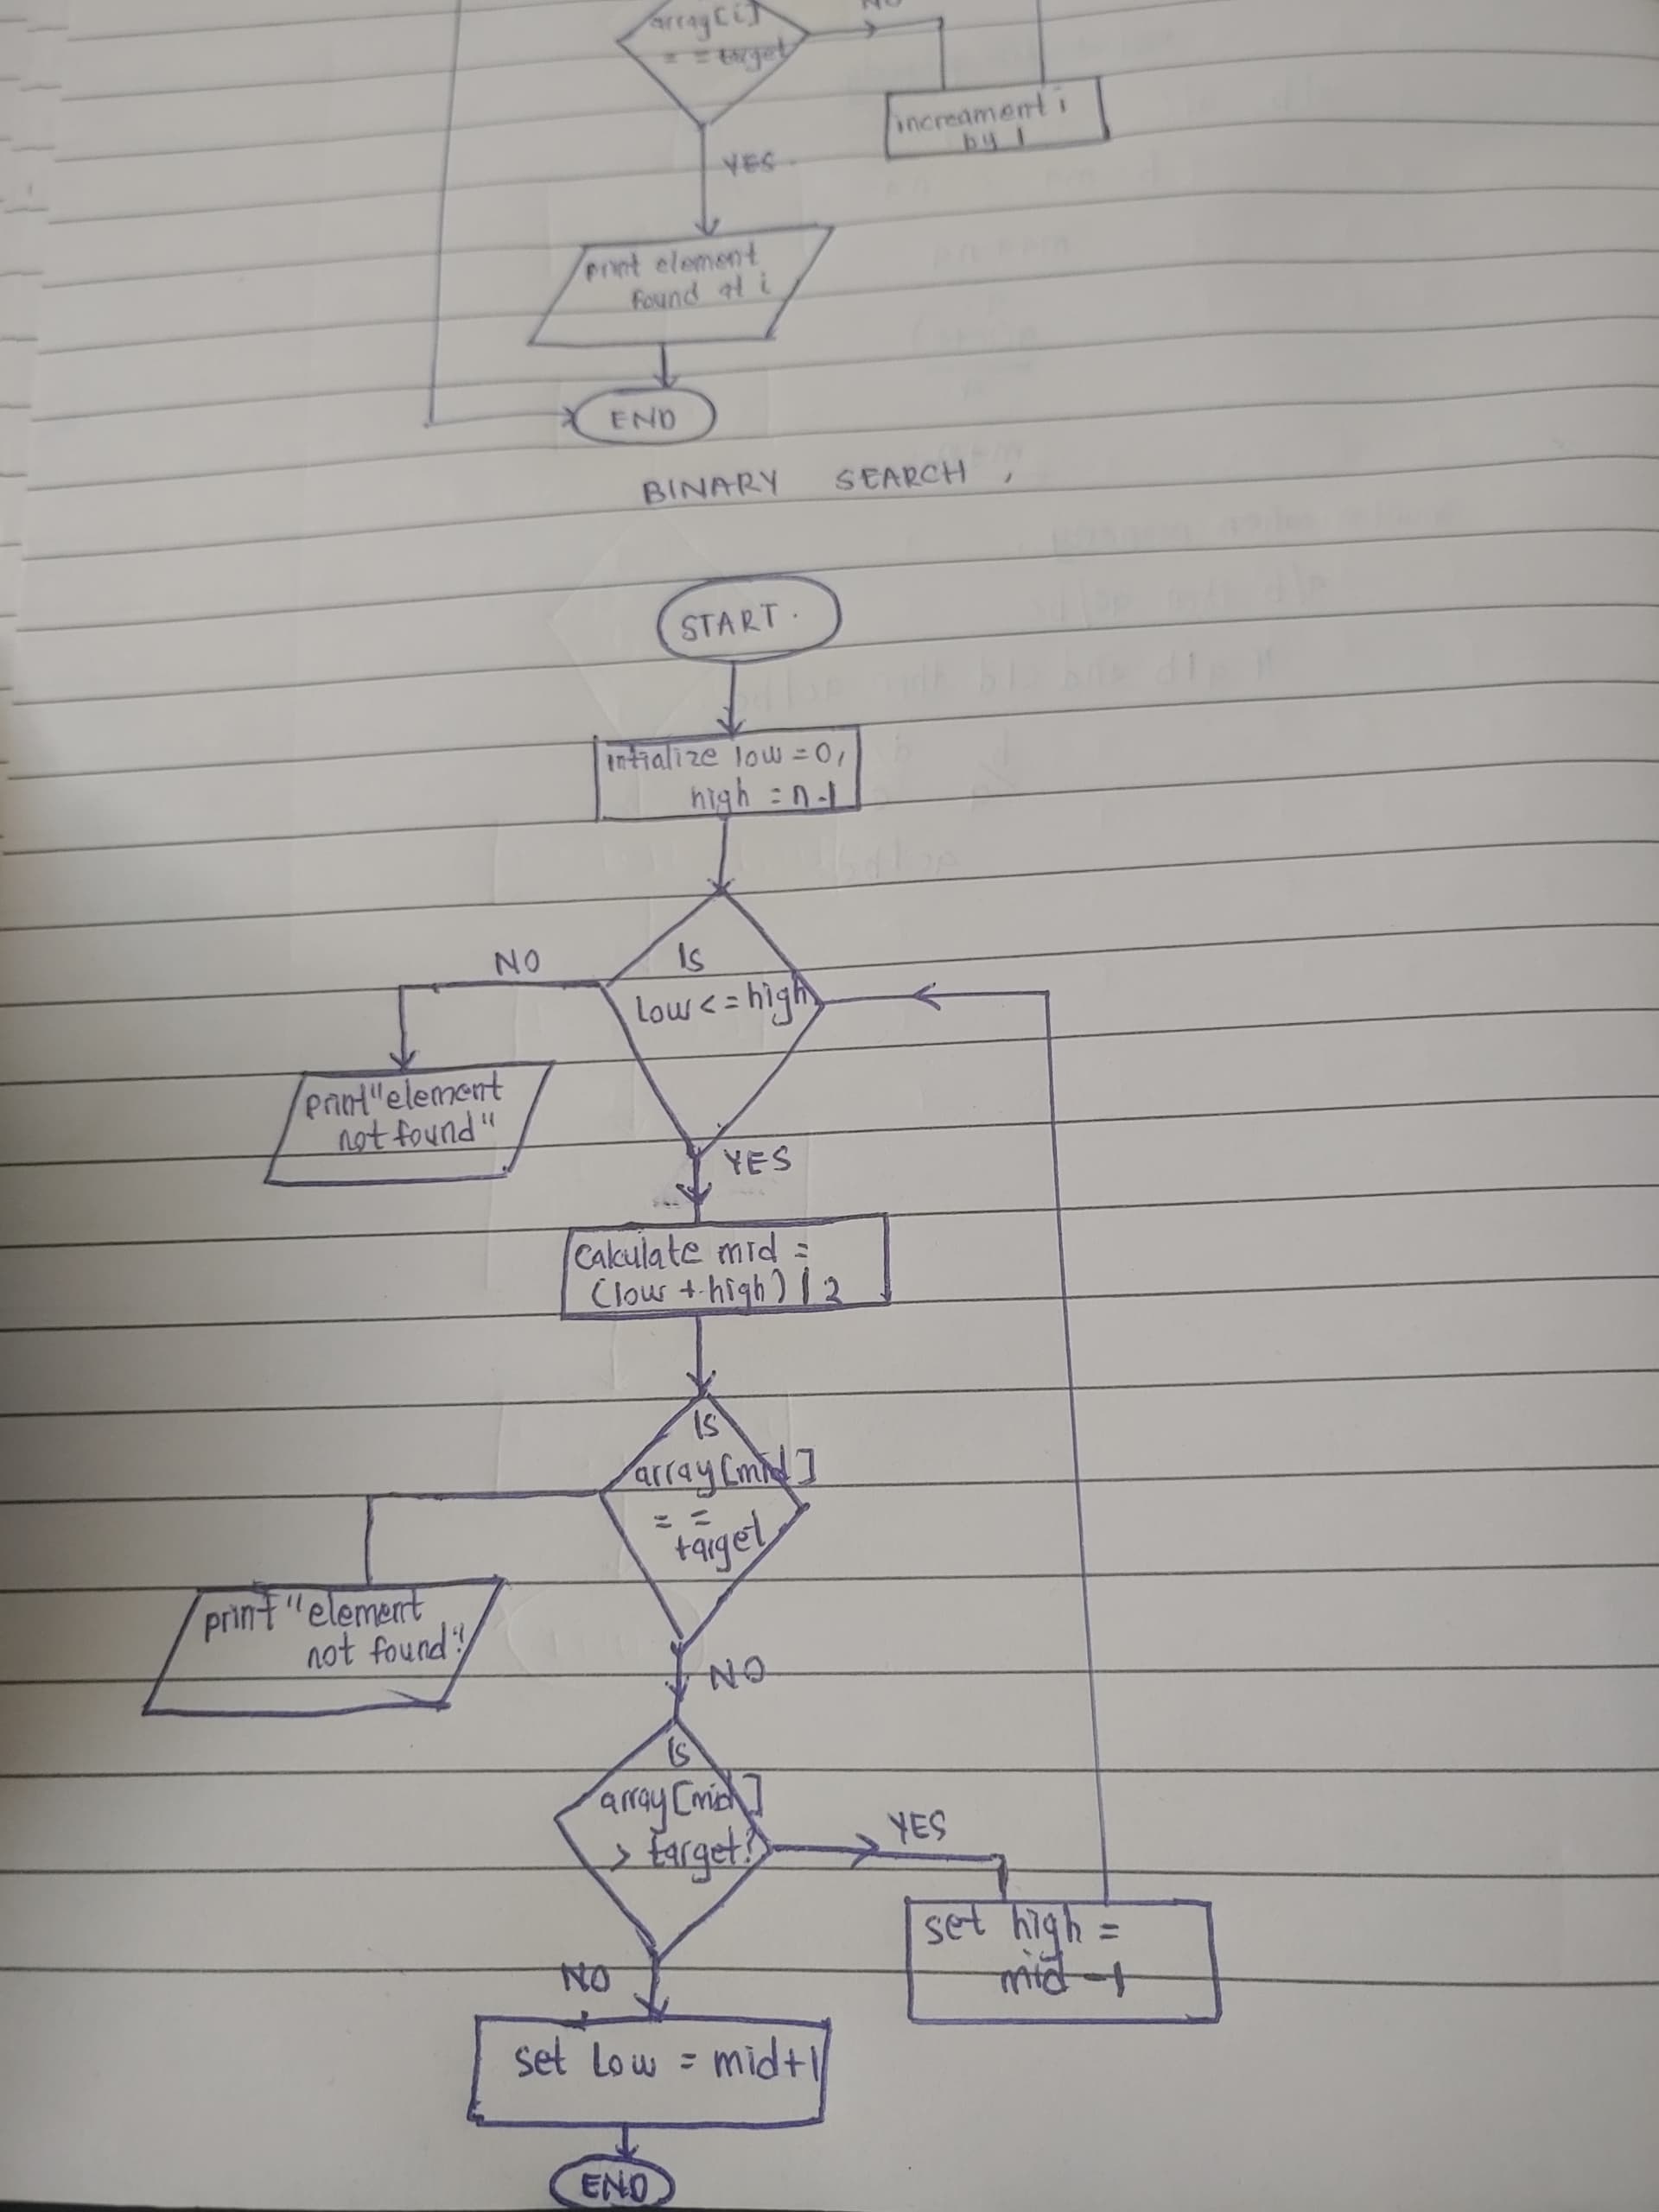 array[i]
= = target
NO
increament i
by 1
YES
print element
found at i
END
BINARY SEARCH,
START.
intialize low = 0,
high = n-1
Is
low <= high
NO
print "element
not found"
YES
calculate mid =
(low + high) / 2
Is
array[mid]
= =
target
print "element
not found"
NO
Is
array[mid]
> target?
YES
set high =
mid -1
NO
set low = mid+1
END